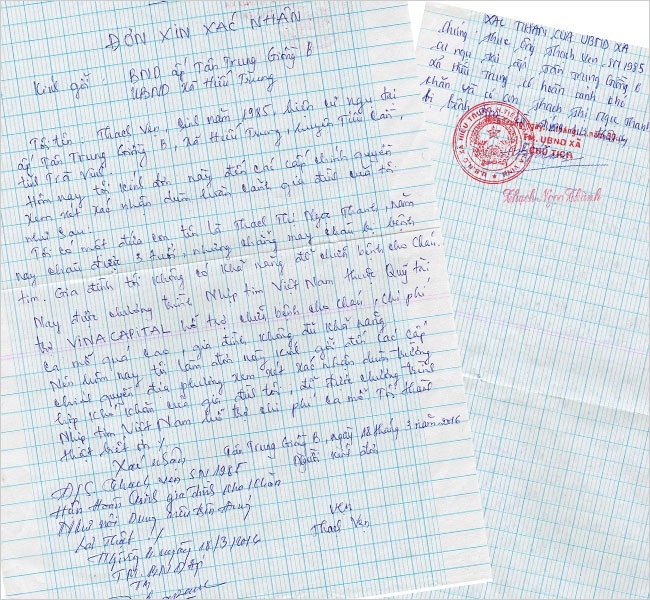 ĐƠN XIN XÁC NHẬN.
Kính gởi: BND ấp Tân Trung Giồng B
UBND xã Hiếu Trung
Tôi tên: Thạch Ven, sinh năm 1985, hiện cư ngụ tại
ấp Tân Trung Giồng B, xã Hiếu Trung, huyện Tiểu Cần,
tỉnh Trà Vinh.
Hôm nay tôi kính đơn này đến các cấp chính quyền
xem xét xác nhận dùm hoàn cảnh gia đình của tôi
như sau.
Tôi có một đứa con tên là Thạch Thị Ngọc Thanh, năm
nay cháu được 3 tuổi, nhưng chẳng may cháu bị bệnh
tim. Gia đình tôi không có khả năng để chữa bệnh cho cháu.
Nay được chương trình Nhịp tim Việt Nam thuộc Quỹ tài
trợ VINACAPITAL hỗ trợ chữa bệnh cho cháu, chi phí
ca mổ quá cao, gia đình không đủ khả năng.
Nên hôm nay tôi làm đơn này kính gởi đến các cấp
chính quyền địa phương xem xét xác nhận dùm trường
hợp khó khăn của gia đình tôi, để được chương trình
Nhịp tim Việt Nam hỗ trợ chi phí ca mổ. Tôi thành
thật biết ơn./.
Tân Trung Giồng B, ngày 18 tháng 3 năm 2016
Xác nhận
Người kính đơn
Thạch Ven SN 1985
Hoàn cảnh gia đình khó khăn
Như nội dung nêu trên đúng
sự thật ./.
ngày 18/3/2016
TM. BND ấp
Ven
Thạch Ven
XÁC NHẬN CỦA UBND XÃ
Chứng thực ông Thạch Ven, SN 1985
cư ngụ tại ấp Tân Trung Giồng B
xã Hiếu Trung có hoàn cảnh khó
khăn và có con Thạch Thị Ngọc Thanh
bị bệnh
TM. UBND XÃ
CHỦ TỊCH
Thạch Ngọc Thành